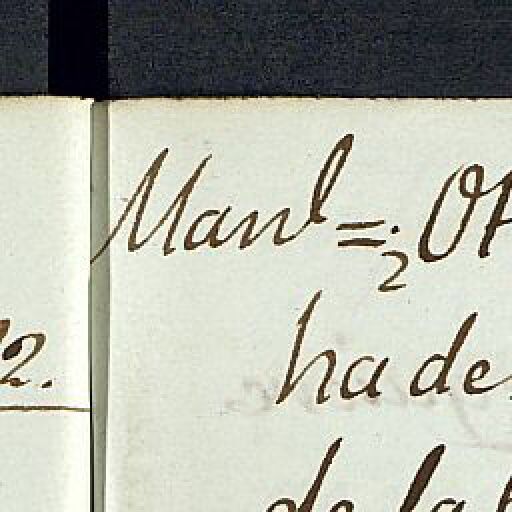 2.
Man^l =
2
ha de
de la